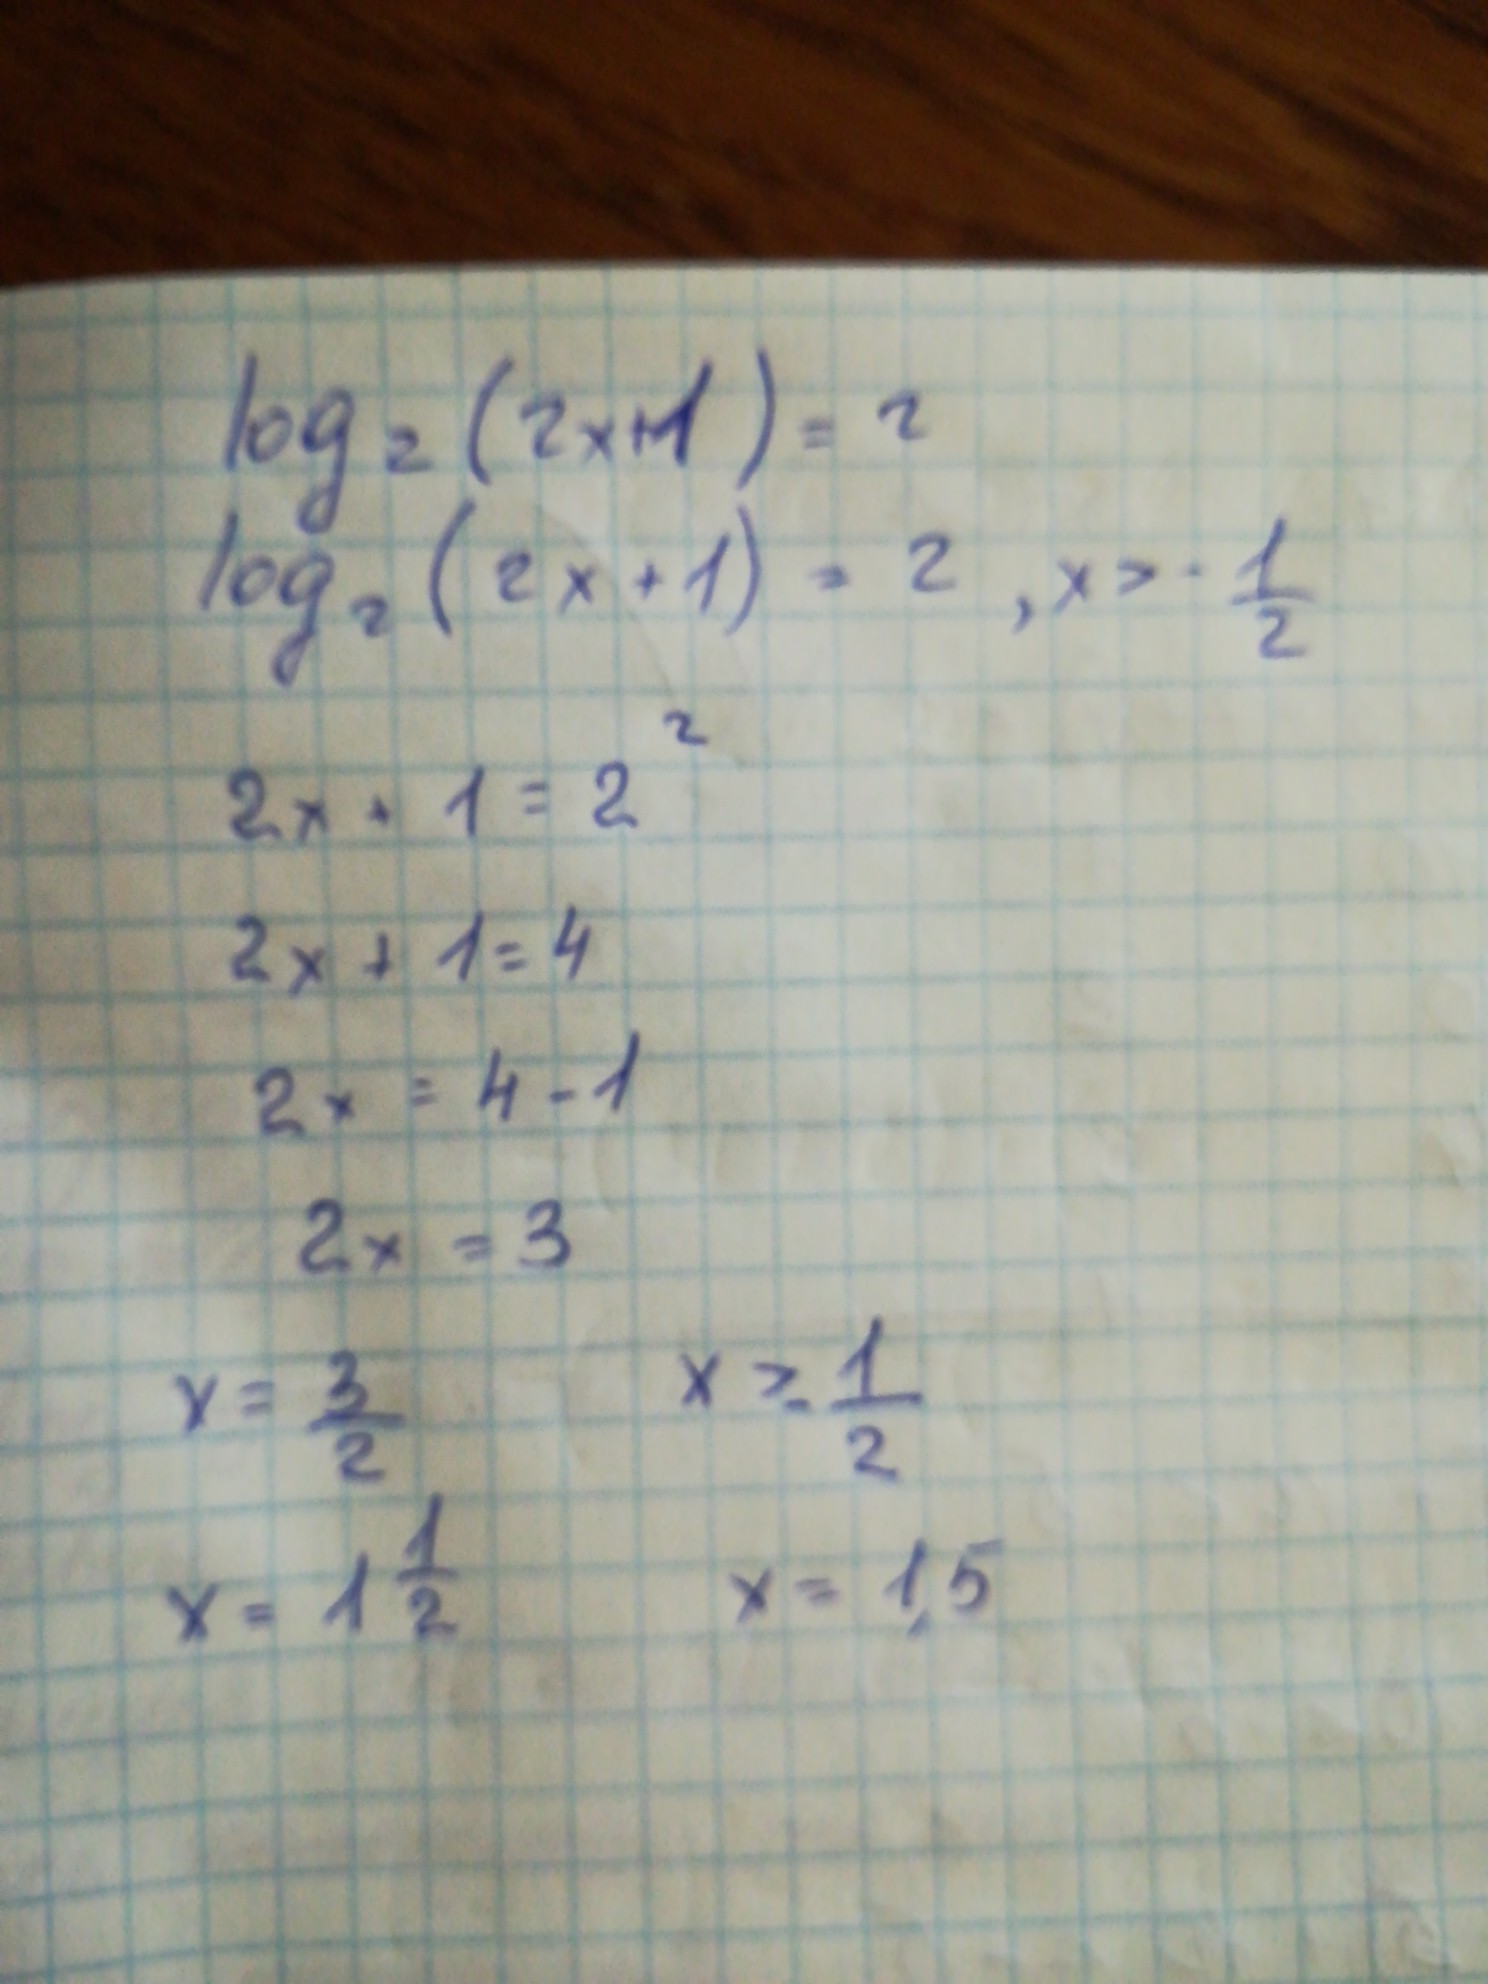 log₂(2x+1) = 2
log₂(2x+1) = 2, x > -1/2
2x + 1 = 2²
2x + 1 = 4
2x = 4 - 1
2x = 3
x = 3/2 x > -1/2
x = 1 1/2 x = 1,5